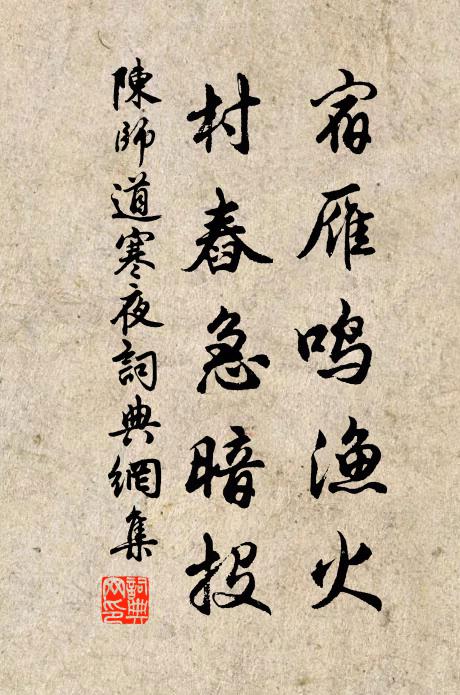 宿雁鸣渔火
村舂急暗投
陳師道寒夜詞典網集
詞典网印